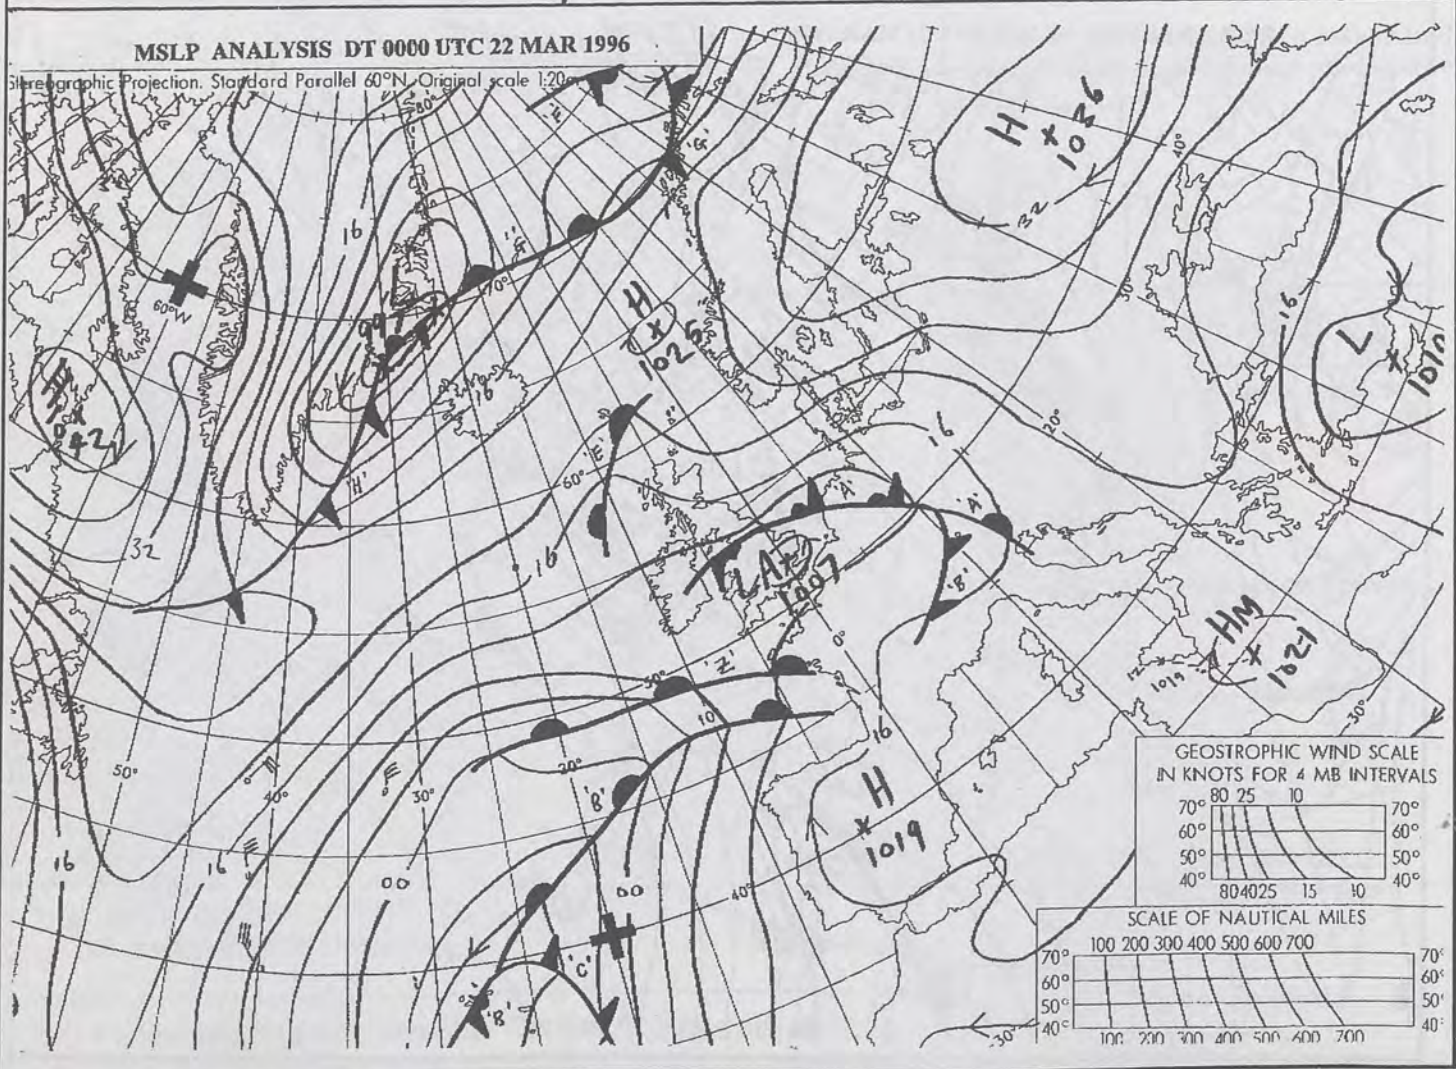 MSLP ANALYSIS DT 0000 UTC 22 MAR 1996
Stereographic Projection. Standard Parallel 60°N. Original scale 1:20
80°
'F'
'G'
H
1036
40°
32
16
60°W
'G'
70°
H
1026
30°
16
L
1010
16
'H'
'E'
60°
16
20°
'A'
'A'
32
16
LA
1007
'B'
0°
HM
1021
1019
30°
'Z'
50°
10
16
50°
40°
20°
30°
'B'
H
1019
16
16
00
00
40°
'C'
'B'
30°
GEOSTROPHIC WIND SCALE
IN KNOTS FOR 4 MB INTERVALS
80 25 10
70° 70°
60° 60°
50° 50°
40° 40°
80 40 25 15 10
SCALE OF NAUTICAL MILES
100 200 300 400 500 600 700
70° 70°
60° 60°
50° 50°
40° 40°
100 200 300 400 500 600 700